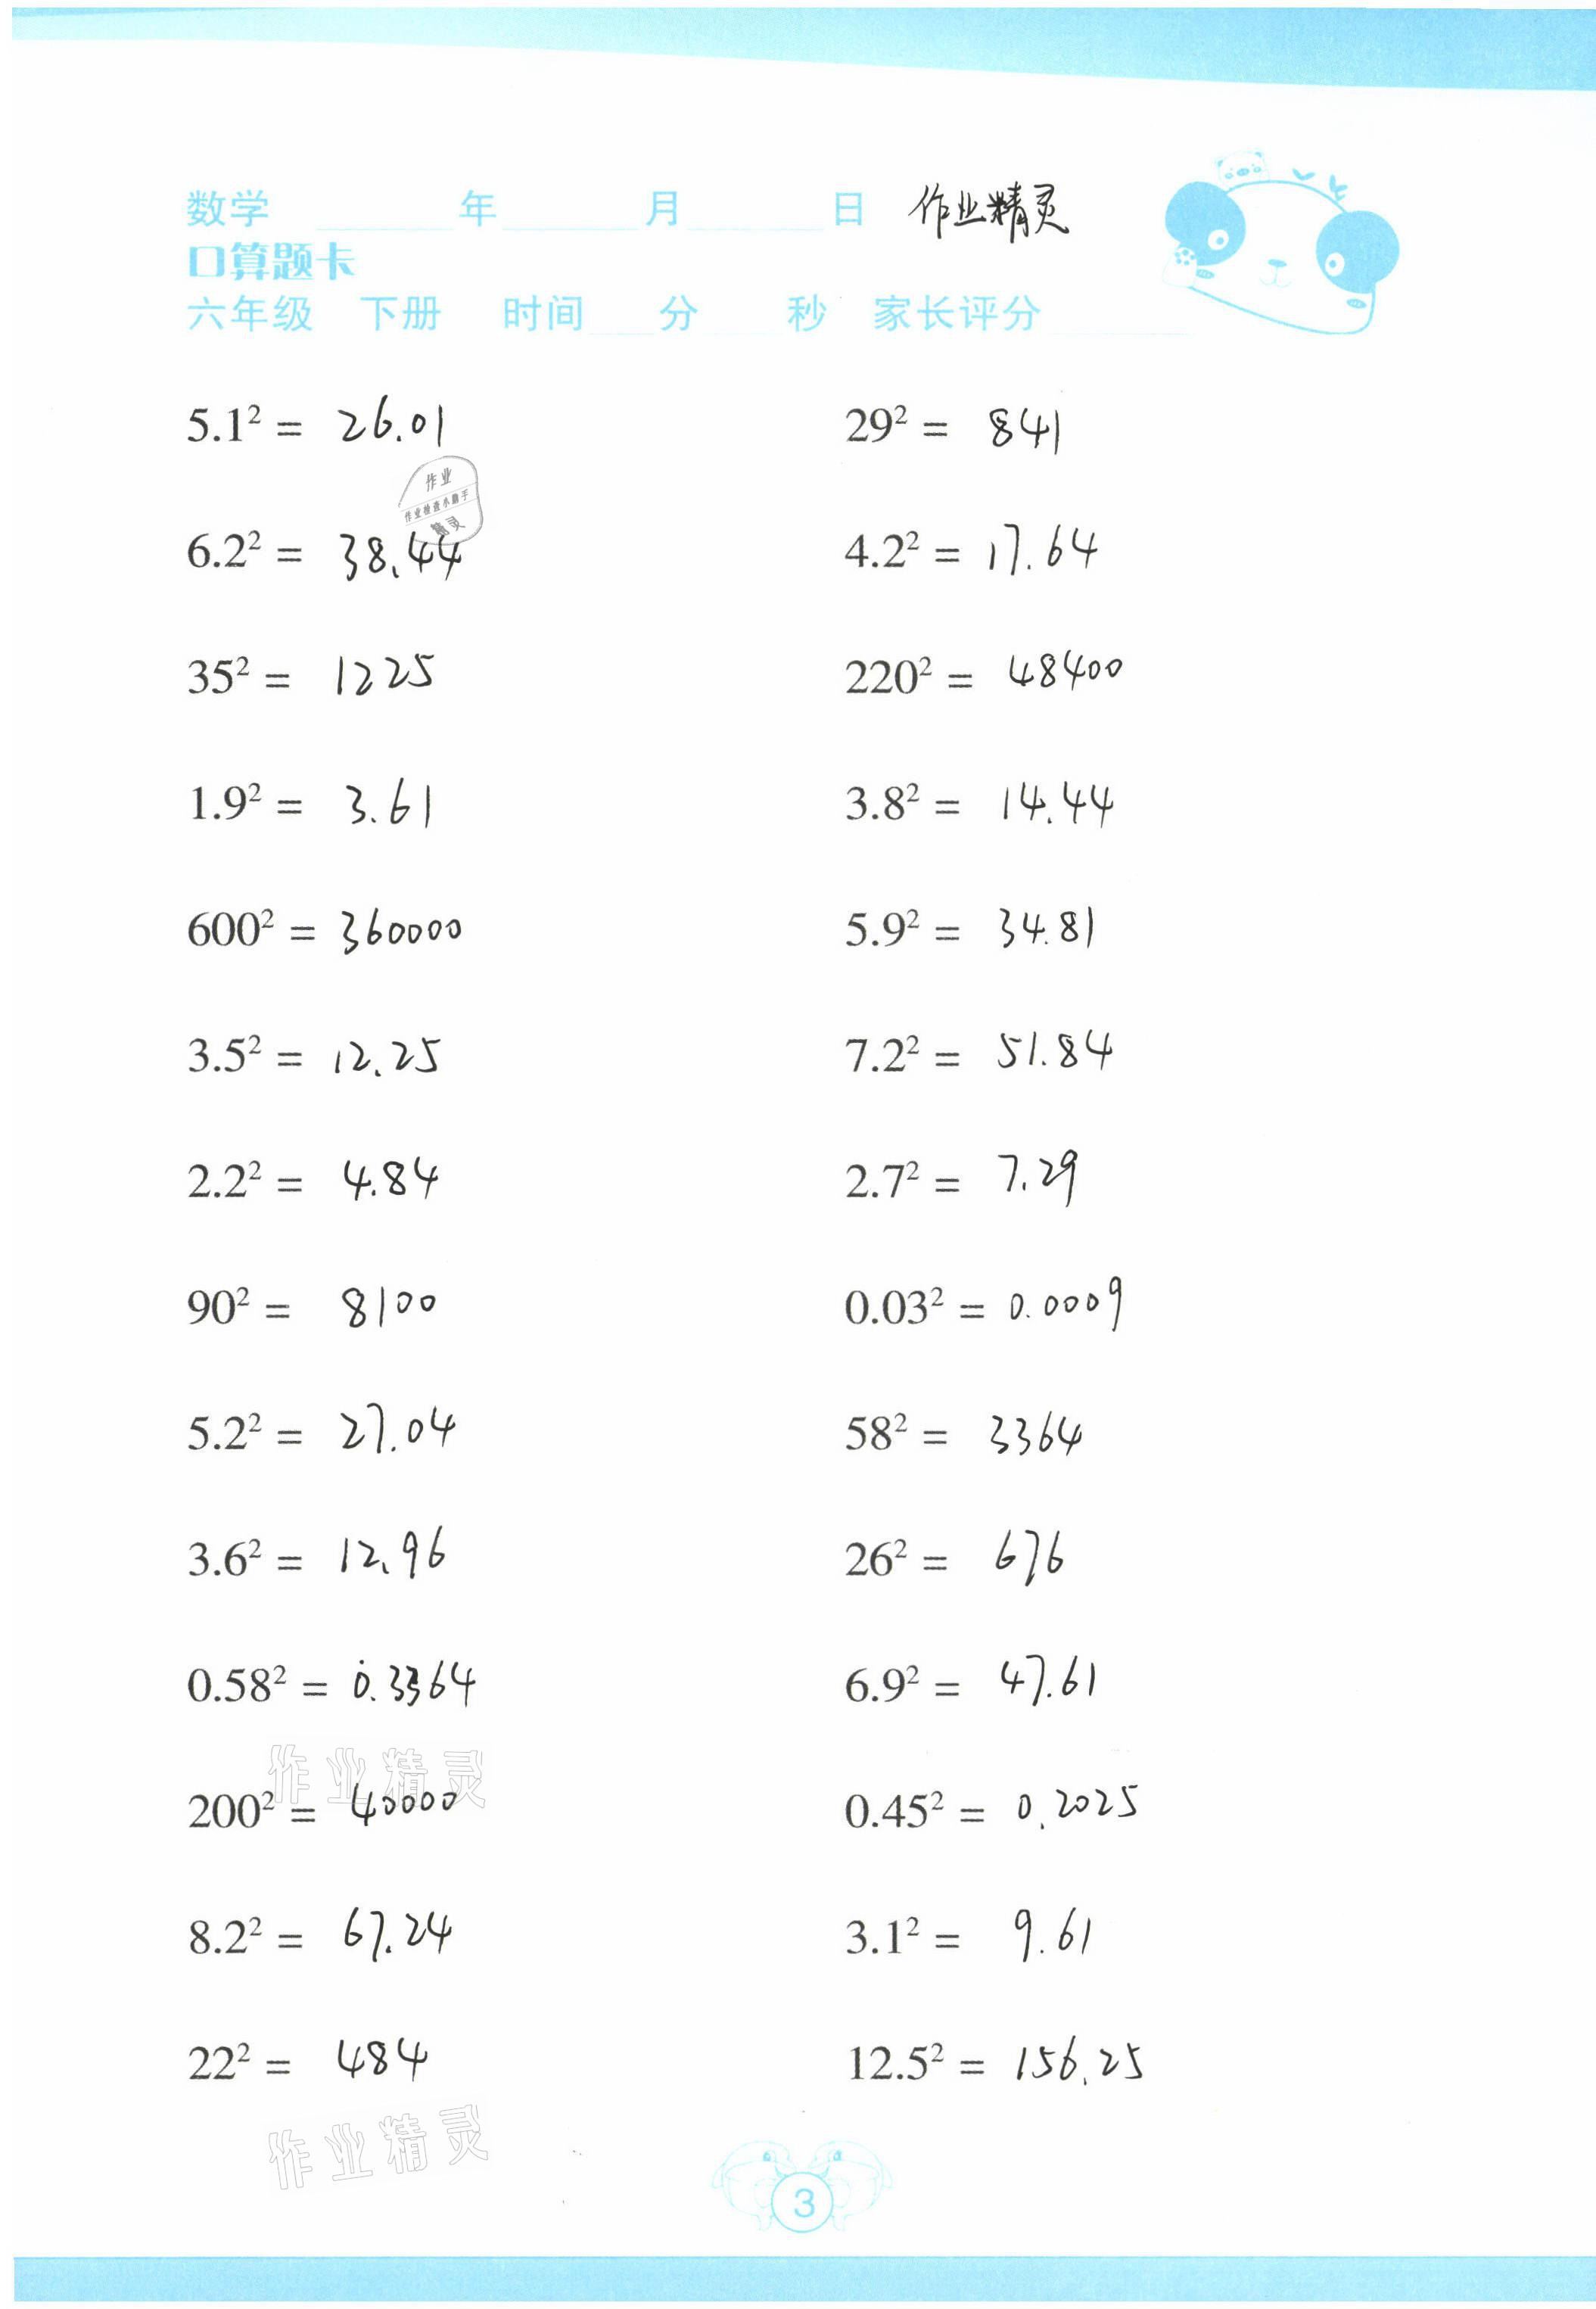 数学 年 月 日 作业精灵
口算题卡
六年级 下册 时间 分 秒 家长评分
5.1² = 26.01 29² = 841
作业
作业检查小助手
精灵
6.2² = 38.44 4.2² = 17.64
35² = 1225 220² = 48400
1.9² = 3.61 3.8² = 14.44
600² = 360000 5.9² = 34.81
3.5² = 12.25 7.2² = 51.84
2.2² = 4.84 2.7² = 7.29
90² = 8100 0.03² = 0.0009
5.2² = 27.04 58² = 3364
3.6² = 12.96 26² = 676
0.58² = 0.3364 6.9² = 47.61
作业精灵
200² = 40000 0.45² = 0.2025
8.2² = 67.24 3.1² = 9.61
22² = 484 12.5² = 156.25
作业精灵
3